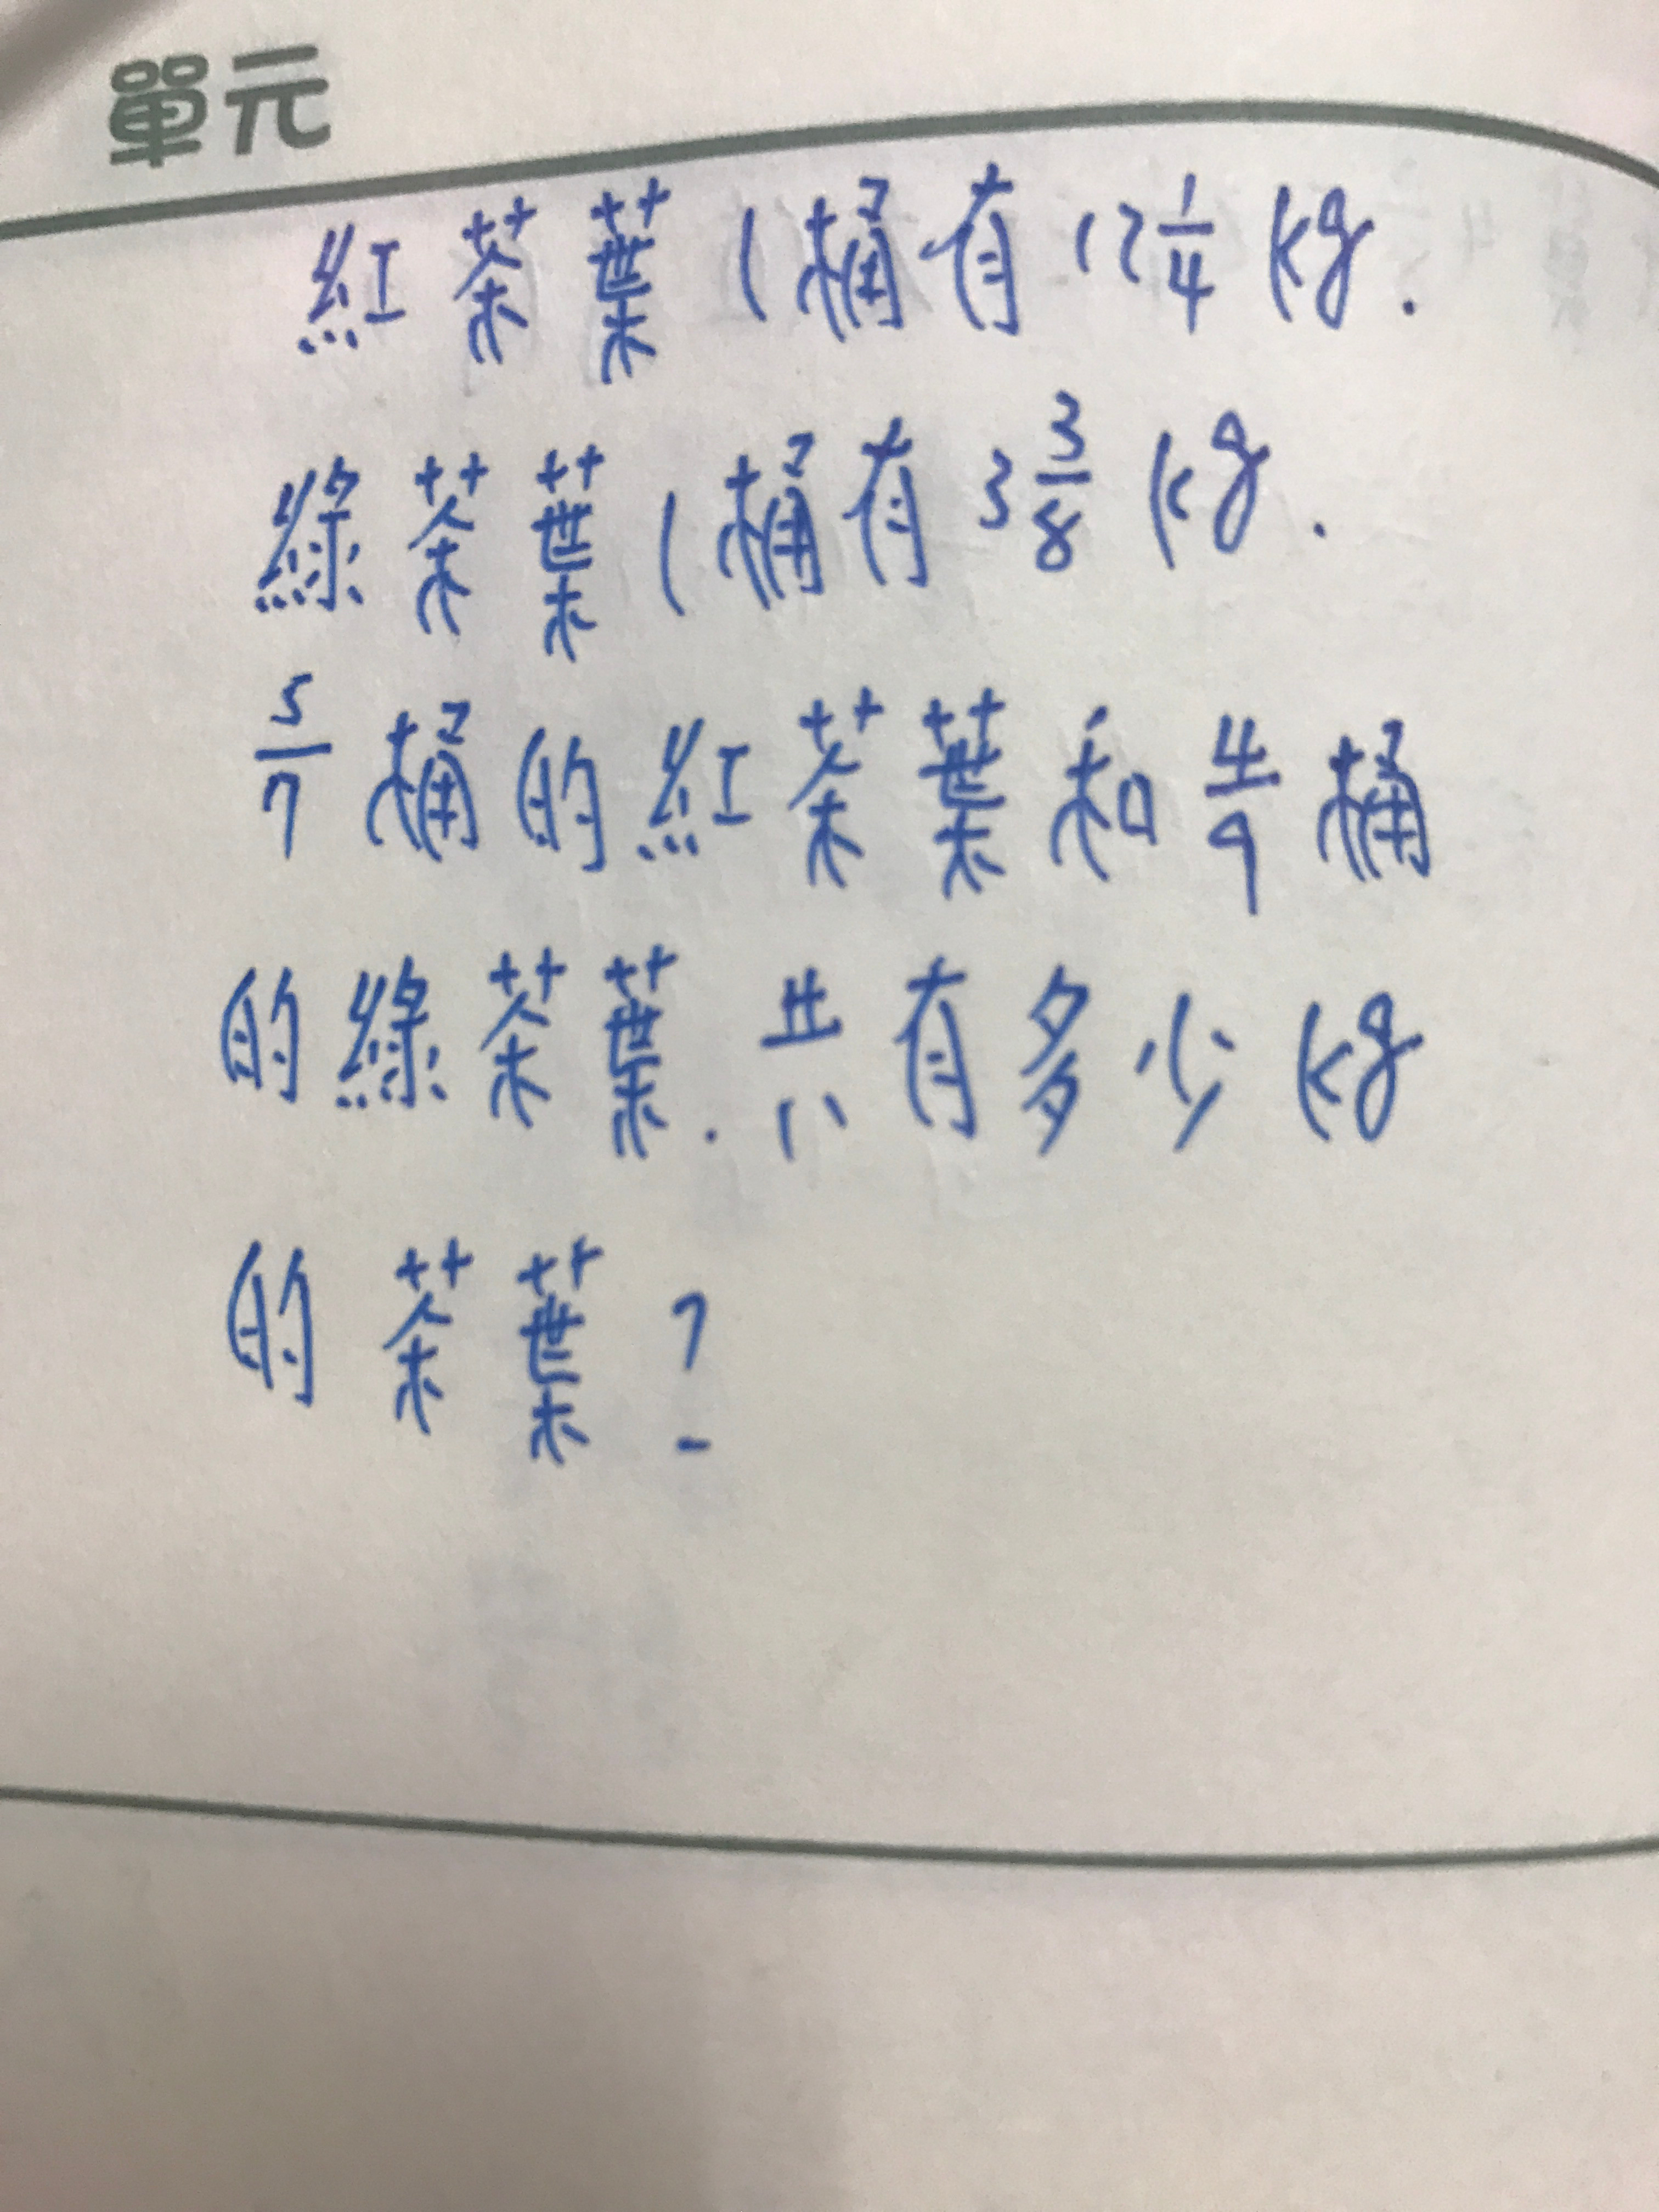 單元
紅茶葉1桶有12 1/4 kg.
綠茶葉1桶有3 3/8 kg.
5/7桶的紅茶葉和4/9桶
的綠茶葉.共有多少kg
的茶葉?